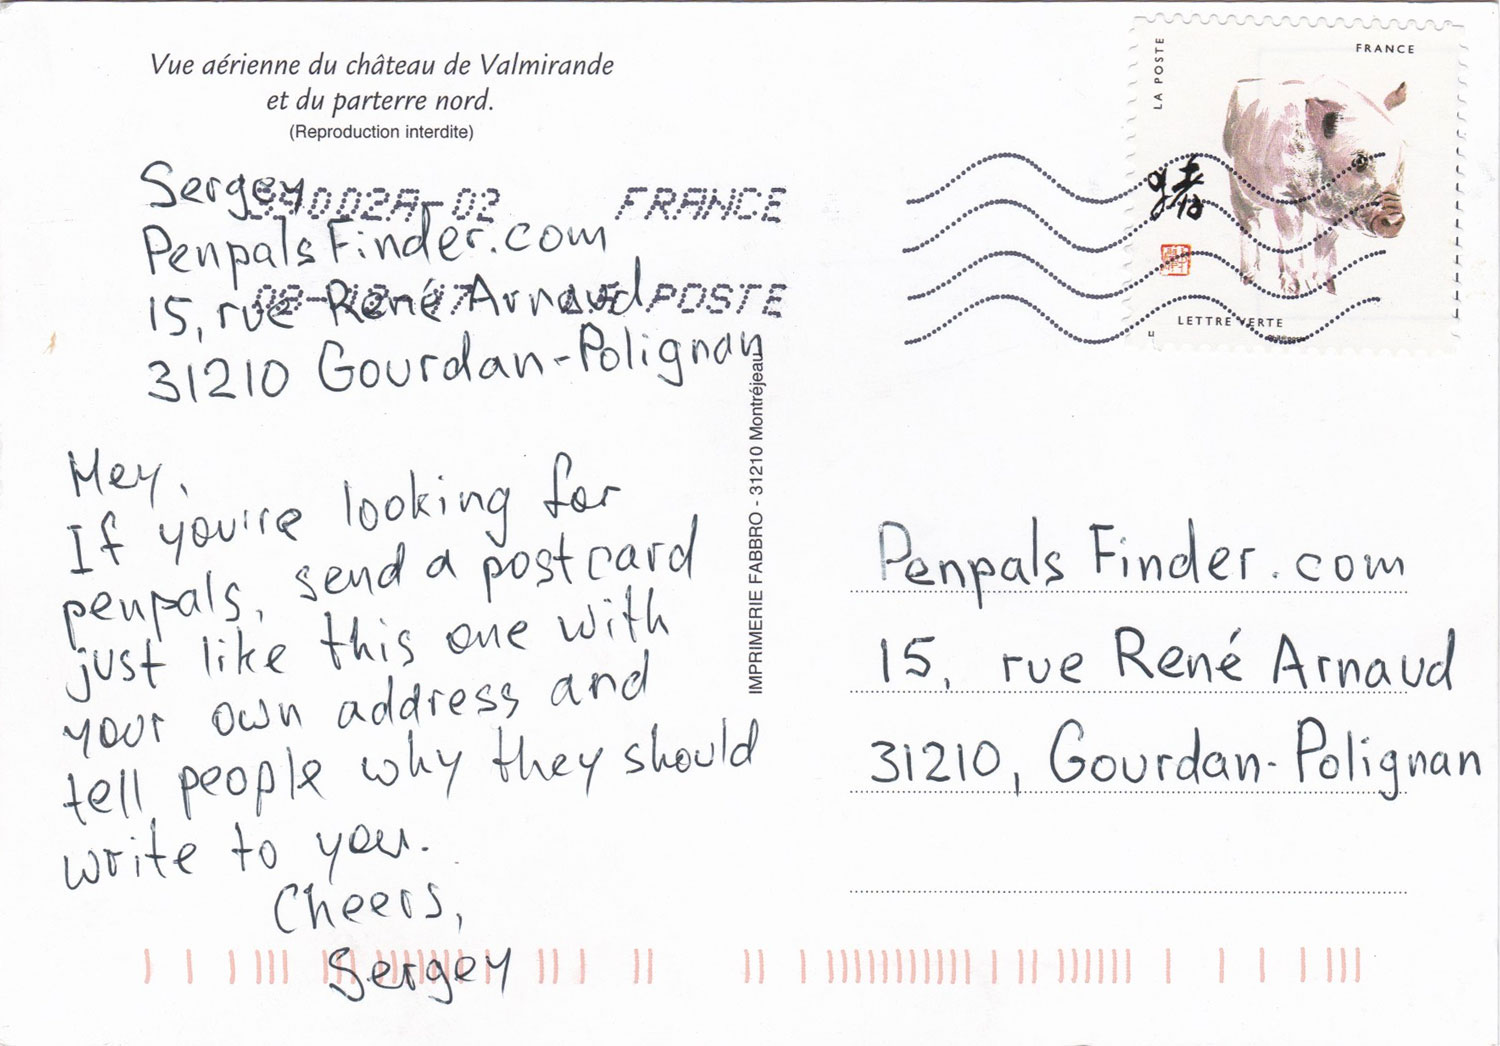 Vue aérienne du château de Valmirande
et du parterre nord.
(Reproduction interdite)
Sergey
PenpalsFinder.com
15, rue René Arnaud
31210 Gourdan-Polignan
Hey,
If you're looking for
penpals, send a postcard
just like this one with
your own address and
tell people why they should
write to you.
Cheers,
Sergey
IMPRIMERIE FABBRO - 31210 Montréjeau
02A-02 FRANCE
LA POSTE
LA POSTE
FRANCE
猪
LETTRE VERTE
Penpals Finder.com
15, rue René Arnaud
31210, Gourdan-Polignan